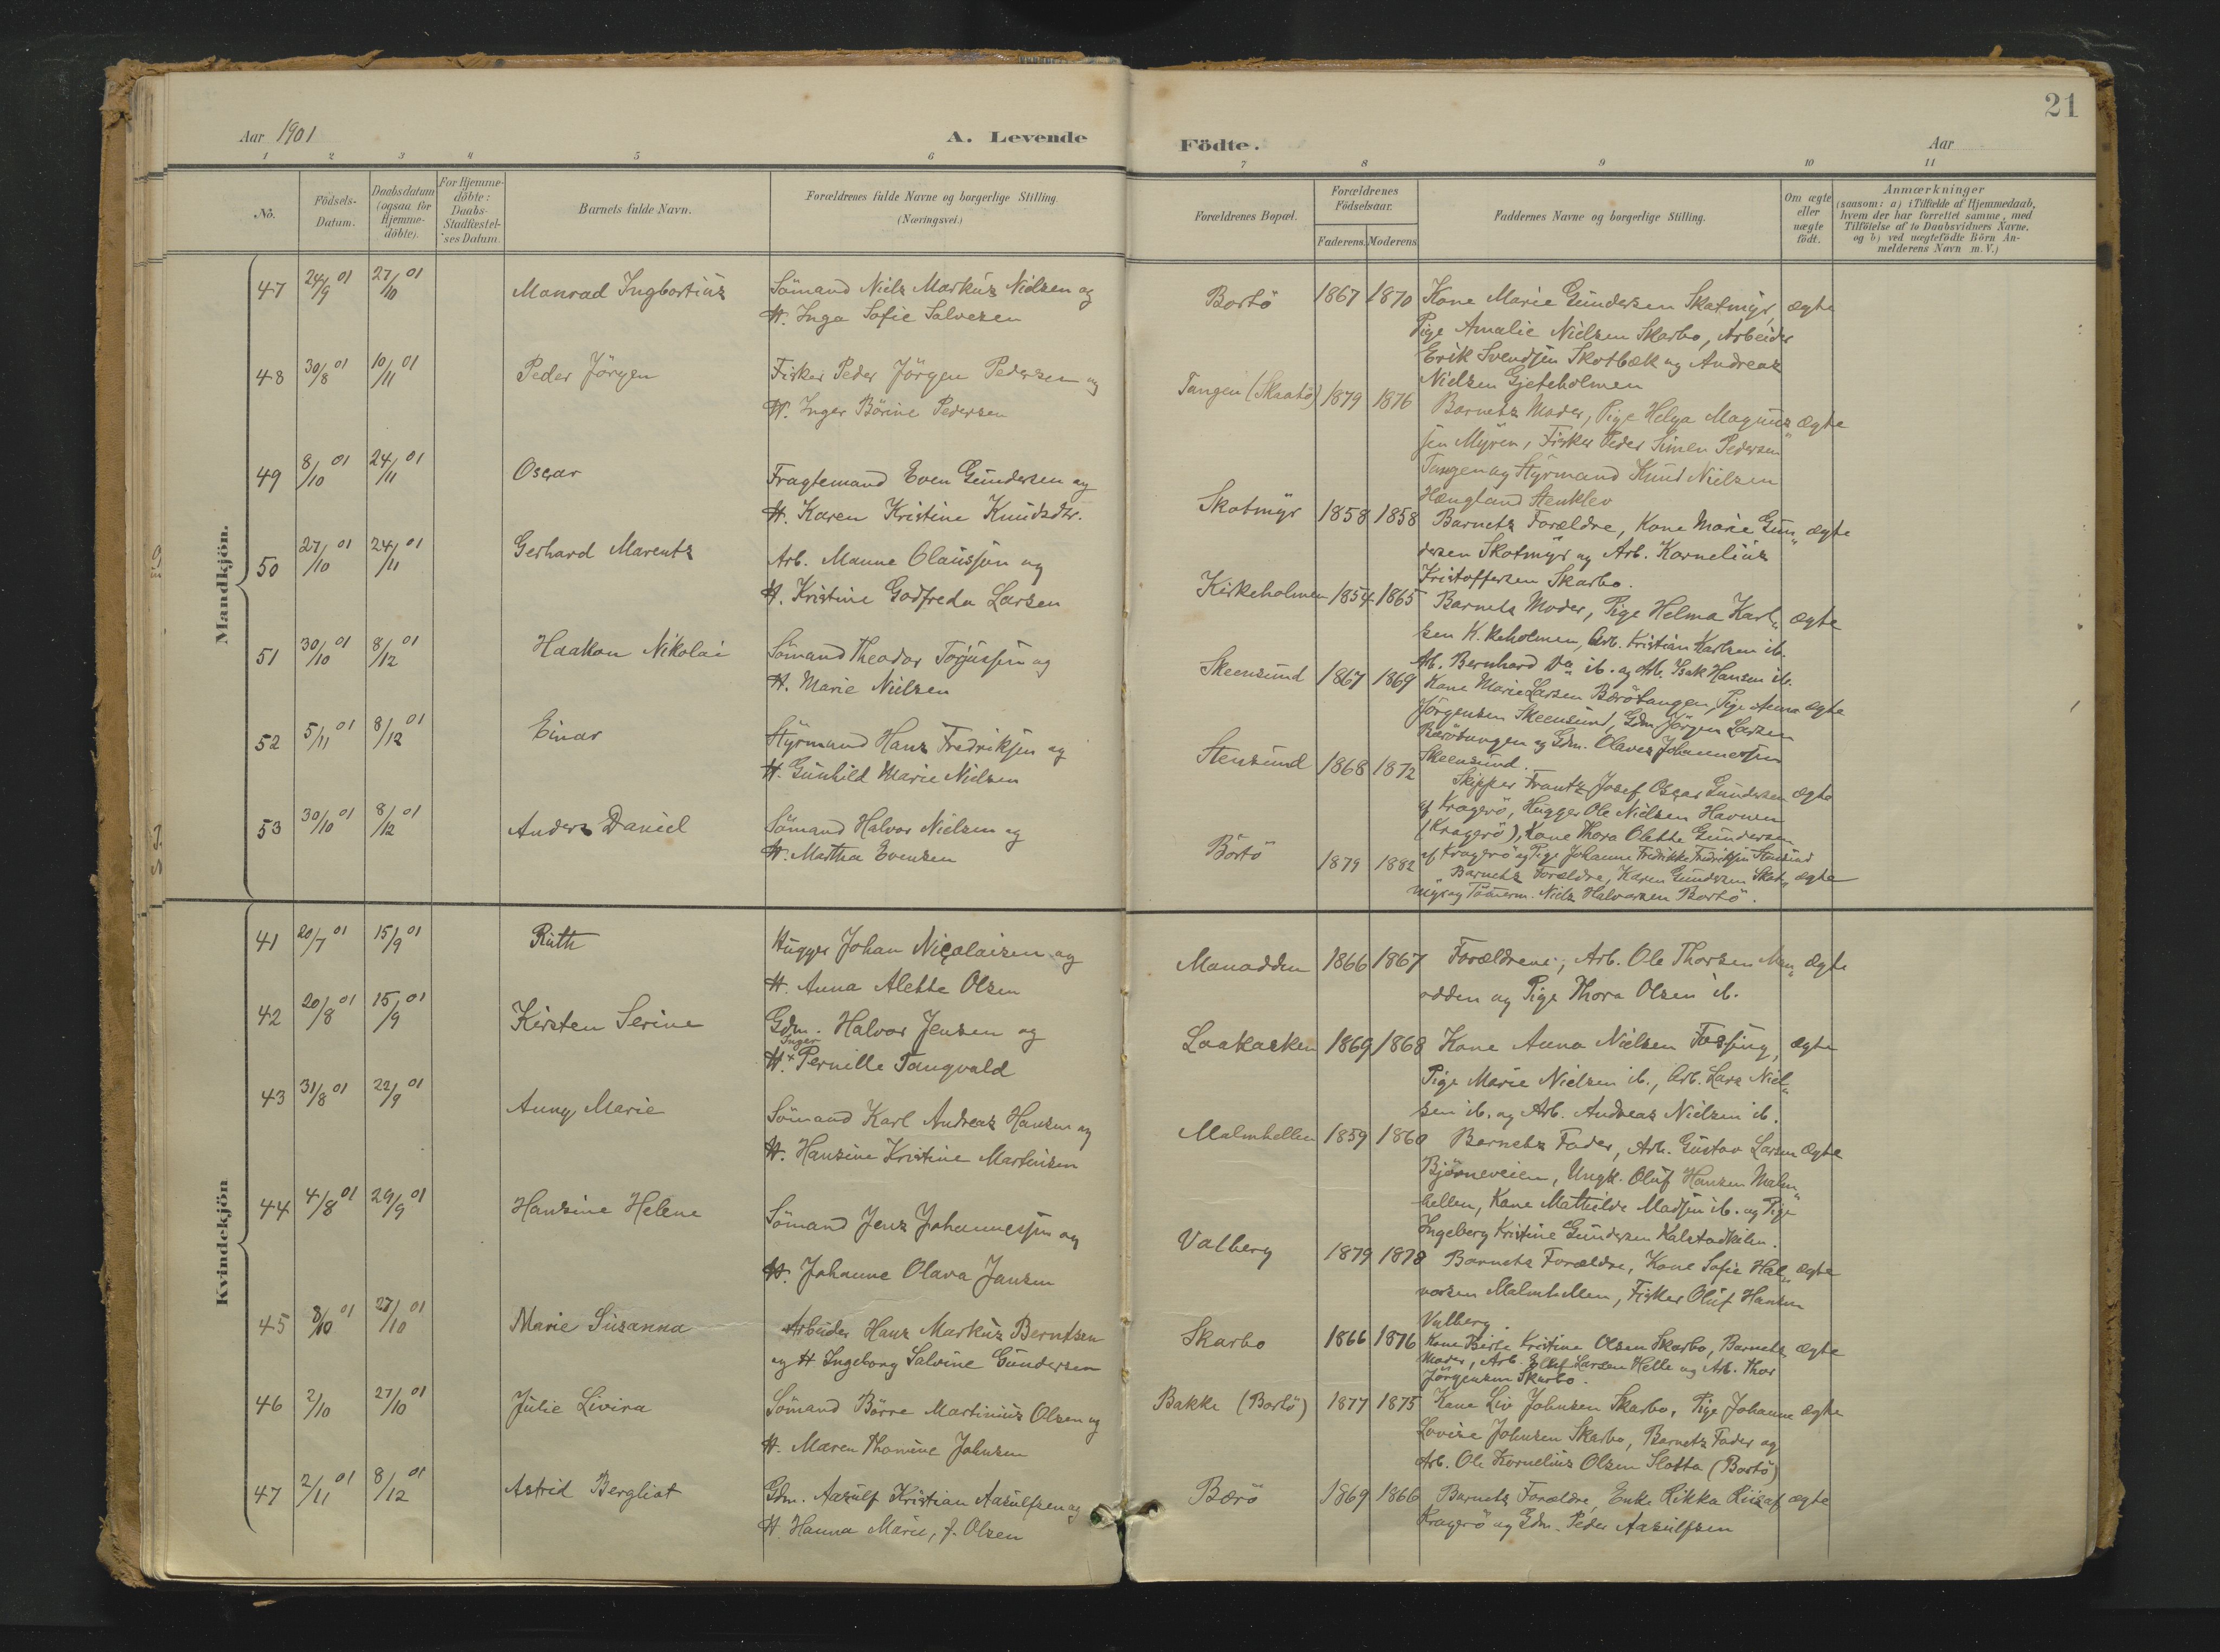 21
Aar 1901
A. Levende
Födte.
Aar
1 2 3 4 5 6 7 8 9 10 11
No.
Födsels-
Datum.
Daabsdatum
(ogsaa for
Hjemme-
döbte).
For Hjemme-
döbte:
Daabs-
Stadfæstel-
ses Datum.
Barnets fulde Navn.
Forældrenes fulde Navne og borgerlige Stilling.
(Næringsvei.)
Forældrenes Bopæl.
Forældrenes
Födselsaar.
Faderens. Moderens
Faddernes Navne og borgerlige Stilling.
Om ægte
eller
uægte
födt.
Anmærkninger
(saasom: a) i Tilfælde af Hjemmedaab,
hvem der har forrettet samme, med
Tilföielse af to Daabsvidners Navne.
og b) ved uægtefödte Börn An-
melderens Navn m. V.)
Mandkjön.
47 24/9 01 27/10 01 Monrad Ingbortius
Sömand Niels Markus Nielsen og
H. Inga Sofie Salvesen
Bortö 1867 1870
Kone Marie Gundersen Skotmyr, ægte
Pige Amalie Nielsen Skarbo, Arbeider
Erik Svendsen Skotbæk og Andreas
Nielsen Gjeteholmen
48 30/8 01 10/11 01 Peder Jörgen
Fisker Peder Jörgen Pedersen og
H. Inger Börine Pedersen
Tangen (Skaatö) 1879 1876
Barnets Moder, Pige Helga Magnus„ ægte
sen Myren, Fisker Peder Simen Pedersen
Tangen og Styrmand Knud Nielsen
Stenklev
49 8/10 01 24/11 01 Oscar
Fragtemand Even Gundersen og
H. Karen Kristine Knudsdtr.
Skotmyr 1858 1858
Barnets Forældre, Kone Marie Gun„ ægte
dersen Skotmyr og Arb. Kornelius
Kristoffersen Skarbo.
50 27/10 01 24/11 01 Gerhard Marents
Arb. Manne Olaussen og
H. Kristine Godfreda Larsen
Kirkeholmen 1854 1865
Barnets Moder, Pige Helma Karl„ ægte
sen K.keholmen, Arb. Kristian Karlsen ib.
Arb. Bernhard Do ib. og Arb. Isak Hansen ib.
51 30/10 01 8/12 01 Haakon Nikolai
Sömand Theodor Torjussen og
H. Marie Nielsen
Skeensund 1867 1869
Kone Marie Larsen Börötangen, Pige Anna ægte
Jörgensen Skeensund, Gdm. Jörgen Larsen
Börötangen og Gdm. Olaves Johannessen
Skeensund.
52 5/11 01 8/12 01 Einar
Styrmand Hans Fredriksen og
H. Gunhild Marie Nielsen
Stensund 1868 1872
Skipper Frantz Josef Oscar Gundersen ægte
af Kragerö, Hugger Ole Nielsen Havnen
(Kragerö), Kone Thora Olette Gundersen
af Kragerö og Pige Johanne Fredrikke Fredriksen Stensund
53 30/10 01 8/12 01 Anders Daniel
Sömand Halvor Nielsen og
H. Martha Evensen
Bortö 1879 1882
Barnets Forældre, Karen Gundersen Skot„ ægte
myr og Tömmerm. Niels Halvorsen Bortö.
Kvindekjön
41 20/7 01 15/9 01 Ruth
Hugger Johan Nicolaisen og
H. Anna Alette Olsen
Manodden 1866 1867
Forældrene, Arb. Ole Thorsen Man„ ægte
odden og Pige Thora Olsen ib.
42 20/8 01 15/9 01 Kirsten Serine
Gdm. Halvor Jensen og
Inger
H. + Pernille Tangvald
Laakasken 1869 1868
Kone Anna Nielsen Fossing, ægte
Pige Marie Nielsen ib., Arb. Lars Niel„
sen ib. og Arb. Andreas Nielsen ib.
43 31/8 01 22/9 01 Anny Marie
Sömand Karl Andreas Hansen og
H. Hansine Kristine Martinsen
Malmhellen 1859 1860
Barnets Fader, Arb. Gustav Larsen ægte
Björneveien, Ungk. Oluf Hansen Malm„
hellen, Kone Mathilde Madsen ib. og Pige
Ingeborg Kristine Gundersen Kalstadkilen.
44 4/8 01 29/9 01 Hansine Helene
Sömand Jens Johannessen og
H. Johanne Olava Jansen
Valberg 1879 1878
Barnets Forældre, Kone Sofie Hal„ ægte
vorsen Malmhellen, Fisker Oluf Hansen
Valberg.
45 8/10 01 27/10 01 Marie Susanna
Arbeider Hans Markus Berntsen
og H. Ingeborg Salvine Gundersen
Skarbo 1866 1876
Kone Berte Kristine Olsen Skarbo, Barnets ægte
Moder, Arb. Larsen Helle og Arb. Thor
Jörgensen Skarbo.
46 2/10 27/10 01 Julie Livira
Sömand Börre Martinius Olsen og
H. Maren Thomine Johnsen
Bakke (Bortö) 1877 1875
Kone Liv Johnsen Skarbo, Pige Johanne ægte
Lovise Johnsen Skarbo, Barnets Fader og
Arb. Ole Kornelius Olsen Slotta (Bortö)
47 2/11 01 8/12 01 Astrid Bergliot
Gdm. Aasulf Kristian Aasulfsen og
H. Hanna Marie, f. Olsen
Börö 1869 1866
Barnets Forældre, Enke Rikka Riis af ægte
Kragerö og Gdm. Peder Aasulfsen